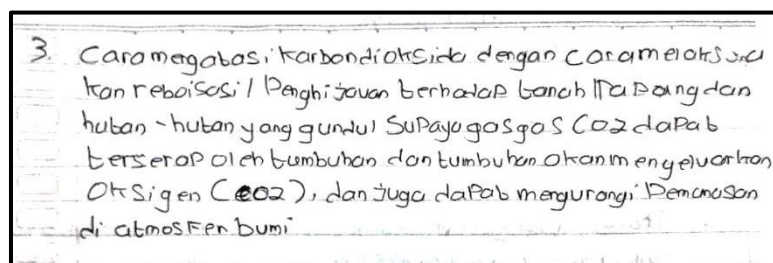 3. Cara mengatasi karbondioksida dengan cara melaksana
kan reboisasi / Penghijauan terhadap tanah lapang dan
hutan - hutan yang gundul supaya gas gas CO2 dapat
terserap oleh tumbuhan dan tumbuhan akan mengeluarkan
Oksigen (CO2), dan juga dapat mengurangi Pemanasan
di atmosfer bumi